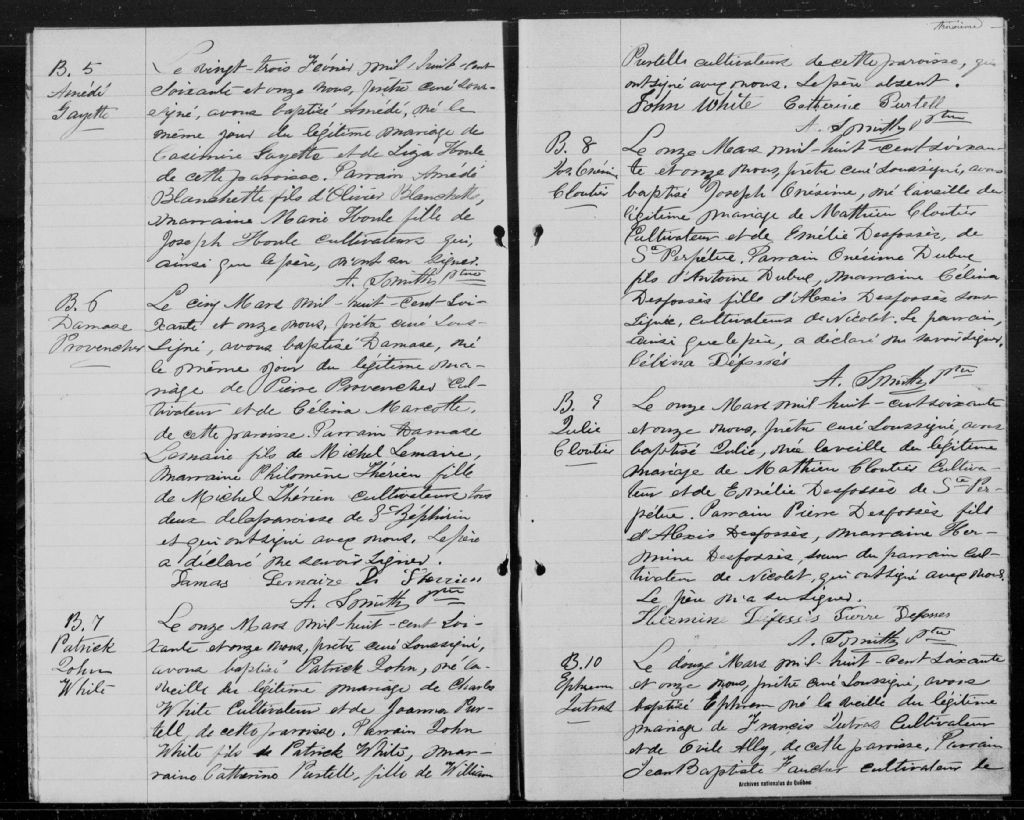 B. 5
Amédé
Gayette
Le vingt-trois Février mil-huit-cent
soixante et onze nous, prêtre curé sous-
signé, avons baptisé Amédé, né le
même jour du légitime mariage de
Casimire Gayette et de Liza Houle
de cette paroisse. Parrain Amédé
Blanchette fils d'Olivier Blanchette,
marraine Marie Houle fille de
Joseph Houle cultivateurs qui,
ainsi que le père, n'ont su signer.
A. Smith ptre
B. 6
Damase
Provencher
Le cinq Mars mil-huit-cent soi-
xante et onze nous, prêtre curé sous-
signé, avons baptisé Damase, né
le même jour du légitime ma-
riage de Pierre Provencher Cul-
tivateur et de Célina Marcotte.
de cette paroisse. Parrain Damase
Lemaire fils de Michel Lemaire,
marraine Philomène Thérien fille
de Michel Thérien cultivateurs tous
deux de la paroisse de St Zéphirin
et qui ont signé avec nous. Le père
a déclaré ne savoir signer.
Damas Lemaire Therrien
A. Smith ptre
B. 7
Patrick
John
White
Le onze Mars mil-huit-cent soi-
xante et onze nous, prêtre curé soussigné,
avons baptisé Patrick John, né la
veille du légitime mariage de Charles
White Cultivateur et de Joanna Pur-
tell, de cette paroisse. Parrain John
White fils de Patrick White, mar-
raine Catherine Purtelle, fille de William
troisième
Purtelle cultivateurs de cette paroisse, qui
ont signé avec nous. Le père absent.
John White Catherine Purtell
A. Smith ptre
B. 8
Jos. Onésime
Cloutier
Le onze Mars mil-huit-cent soixan-
te et onze nous, prêtre curé soussigné, avons
baptisé Joseph Onésime, né la veille du
légitime mariage de Mathieu Cloutier
Cultivateur et de Emélie Desfossés, de
Ste Perpétue. Parrain Onésime Dubuc
fils d'Antoine Dubuc, marraine Célina
Desfossés fille d'Alexis Desfossés sous-
signée, cultivateurs de Nicolet. Le parrain,
ainsi que le père, a déclaré ne savoir signer.
Célina Défossés
A. Smith ptre
B. 9
Julie
Cloutier
Le onze Mars mil huit-cent soixante
et onze nous, prêtre curé soussigné, avons
baptisé Julie, née la veille du légitime
mariage de Mathieu Cloutier Cultiva-
teur et de Emélie Desfossés de Ste Per-
pétue. Parrain Pierre Desfossés fils
d'Alexis Desfossés, marraine Her-
mine Desfossés, sœur du parrain Cul-
tivateur de Nicolet, qui ont signé avec nous.
Le père n'a su signer.
Hermine Défossés Pierre Defosses
A. Smith ptre
B. 10
Ephrem
Jutras
Le douze Mars mil-huit-cent soixante
et onze nous, prêtre curé soussigné, avons
baptisé Ephrem né la veille du légitime
mariage de Francis Jutras Cultivateur
et de Ally, de cette paroisse, Parrain
Jean Baptiste Faucher cultivateur le
Archives nationales du Québec